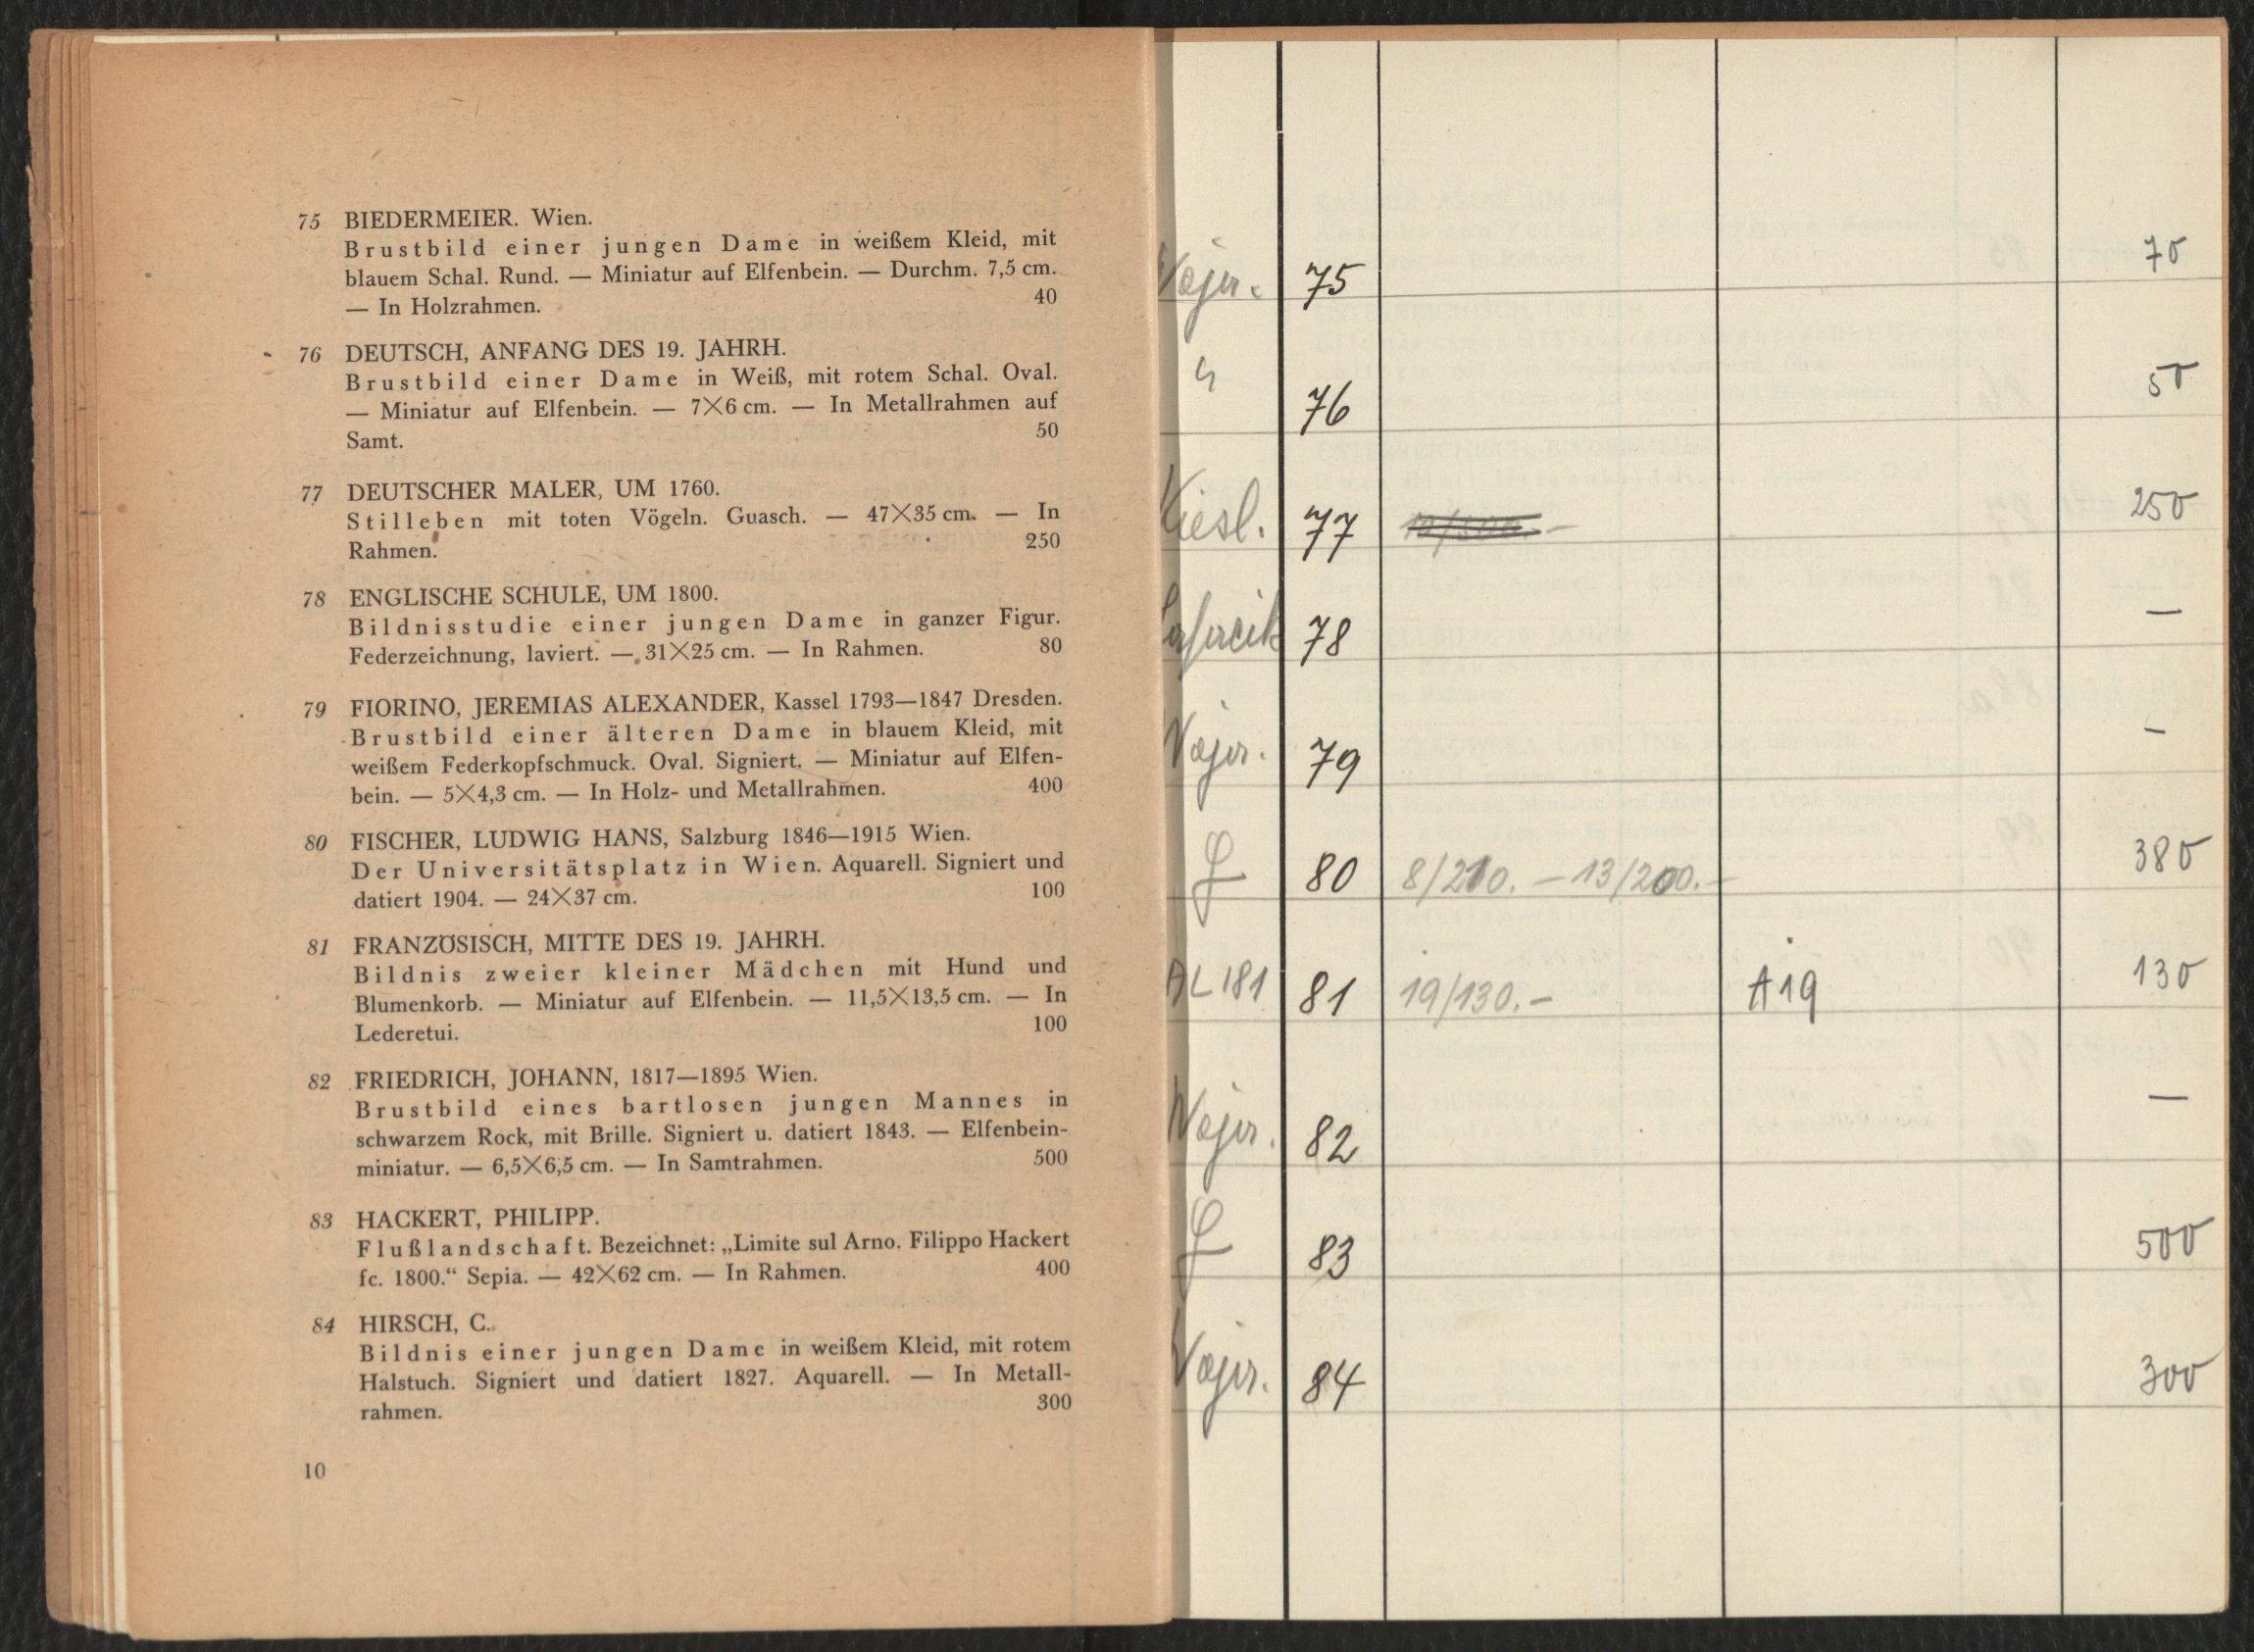 75 BIEDERMEIER. Wien.
Brustbild einer jungen Dame in weißem Kleid, mit
blauem Schal. Rund. — Miniatur auf Elfenbein. — Durchm. 7,5 cm.
— In Holzrahmen. 40
76 DEUTSCH, ANFANG DES 19. JAHRH.
Brustbild einer Dame in Weiß, mit rotem Schal. Oval.
— Miniatur auf Elfenbein. — 7×6 cm. — In Metallrahmen auf
Samt. 50
77 DEUTSCHER MALER, UM 1760.
Stilleben mit toten Vögeln. Guasch. — 47×35 cm. — In
Rahmen. 250
78 ENGLISCHE SCHULE, UM 1800.
Bildnisstudie einer jungen Dame in ganzer Figur.
Federzeichnung, laviert. — 31×25 cm. — In Rahmen. 80
79 FIORINO, JEREMIAS ALEXANDER, Kassel 1793—1847 Dresden.
Brustbild einer älteren Dame in blauem Kleid, mit
weißem Federkopfschmuck. Oval. Signiert. — Miniatur auf Elfen-
bein. — 5×4,3 cm. — In Holz- und Metallrahmen. 400
80 FISCHER, LUDWIG HANS, Salzburg 1846—1915 Wien.
Der Universitätsplatz in Wien. Aquarell. Signiert und
datiert 1904. — 24×37 cm. 100
81 FRANZÖSISCH, MITTE DES 19. JAHRH.
Bildnis zweier kleiner Mädchen mit Hund und
Blumenkorb. — Miniatur auf Elfenbein. — 11,5×13,5 cm. — In
Lederetui. 100
82 FRIEDRICH, JOHANN, 1817—1895 Wien.
Brustbild eines bartlosen jungen Mannes in
schwarzem Rock, mit Brille. Signiert u. datiert 1843. — Elfenbein-
miniatur. — 6,5×6,5 cm. — In Samtrahmen. 500
83 HACKERT, PHILIPP.
Flußlandschaft. Bezeichnet: „Limite sul Arno. Filippo Hackert
fc. 1800.“ Sepia. — 42×62 cm. — In Rahmen. 400
84 HIRSCH, C.
Bildnis einer jungen Dame in weißem Kleid, mit rotem
Halstuch. Signiert und datiert 1827. Aquarell. — In Metall-
rahmen. 300
10
75 70
76 50
77 250
78 —
79 —
80 8/210.— 13/200.— 380
81 19/130.— A19 130
82 —
83 500
84 300